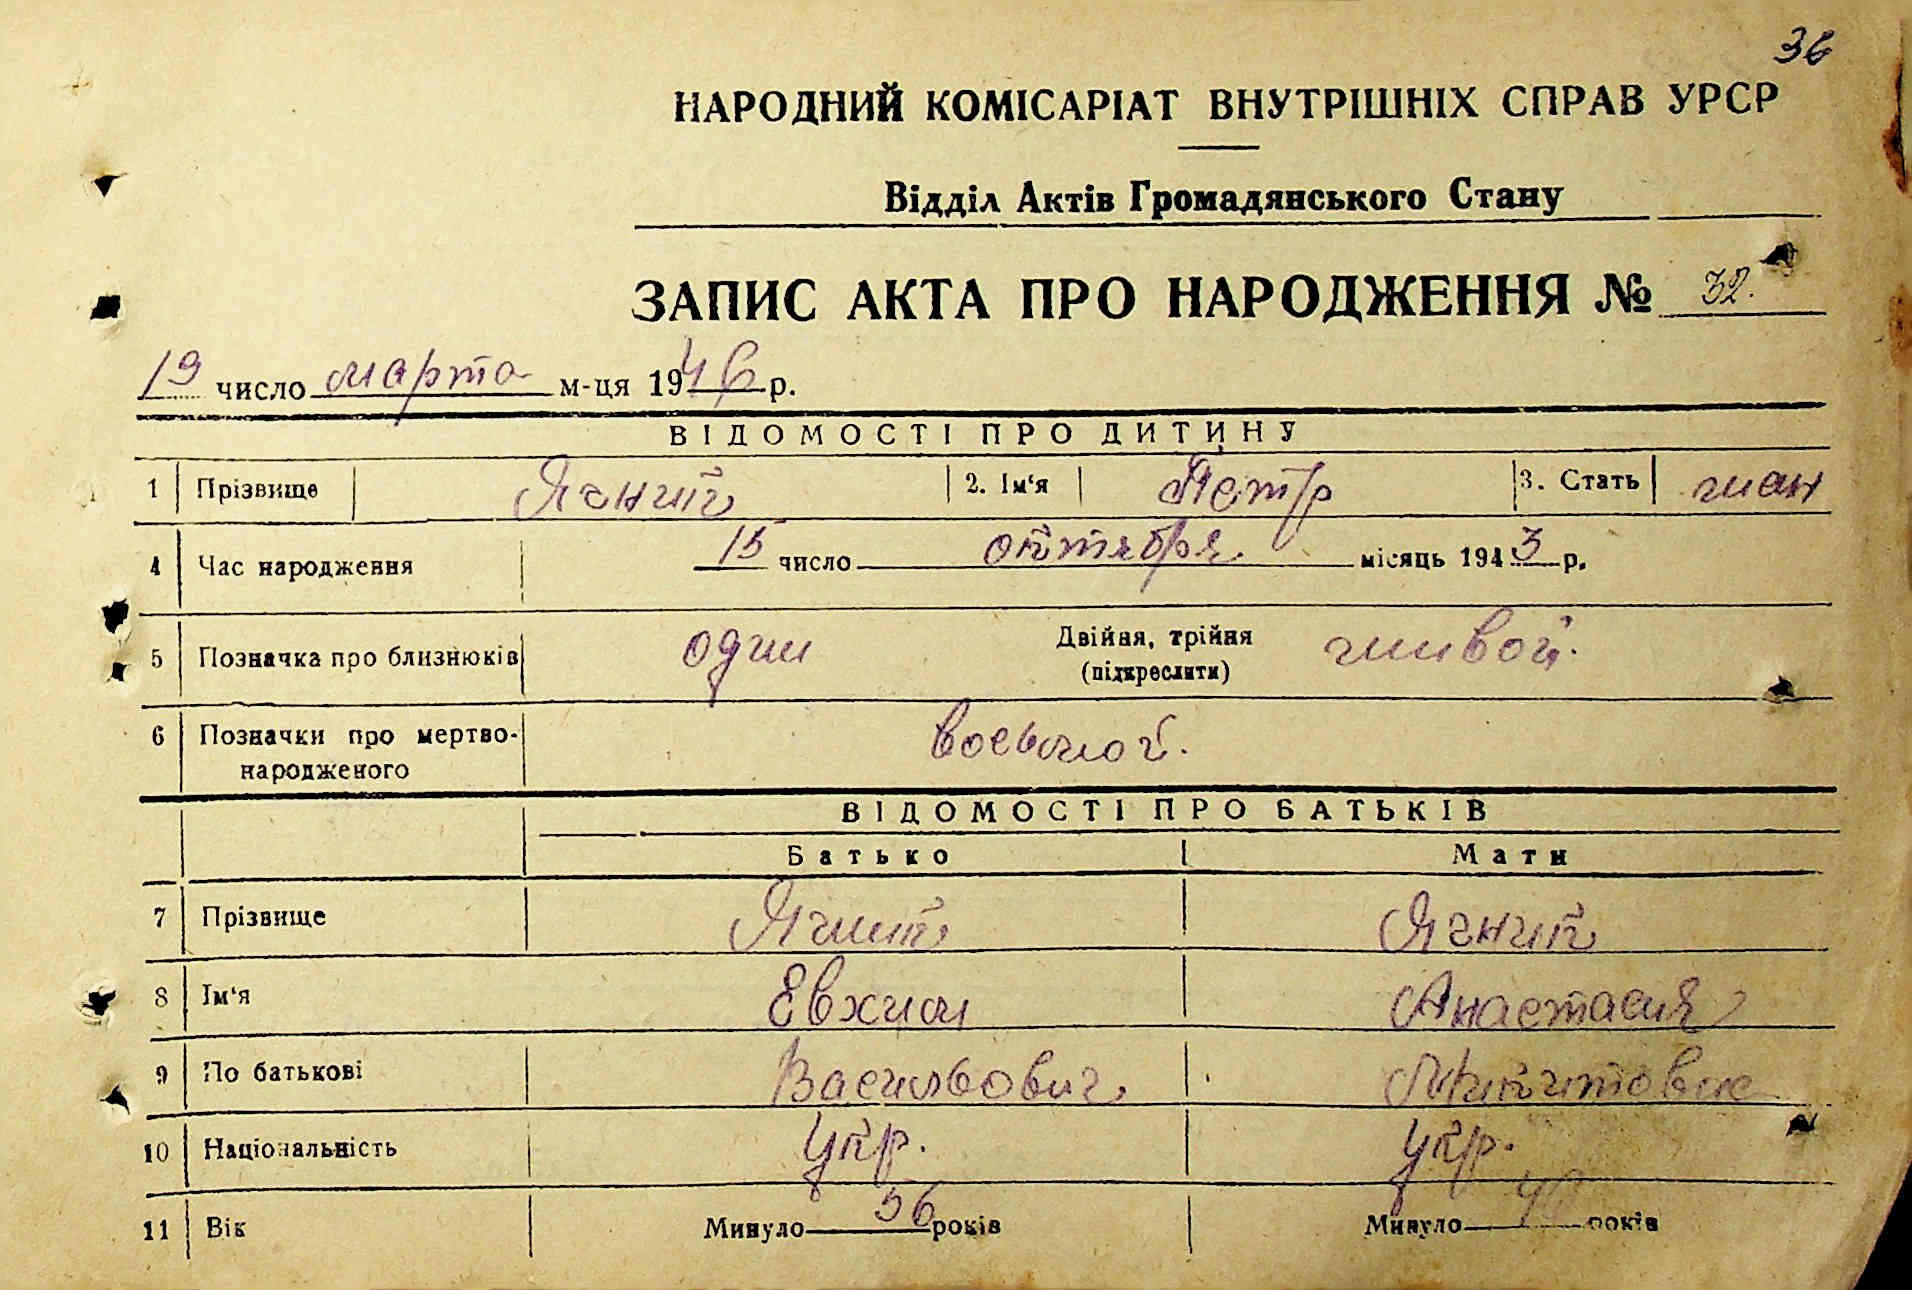 36
НАРОДНИЙ КОМІСАРІАТ ВНУТРІШНІХ СПРАВ УРСР
Відділ Актів Громадянського Стану
ЗАПИС АКТА ПРО НАРОДЖЕННЯ № 32.
19 число марта м-ця 1946 р.
ВІДОМОСТІ ПРО ДИТИНУ
1 Прізвище Ягнит 2. Ім‘я Петр 3. Стать
4 Час народження 15 число октября місяць 1943 р.
5 Позначка про близнюків один Двійня, трійня (підкреслити) живой.
6 Позначки про мертво-
народженого восьмой.
ВІДОМОСТІ ПРО БАТЬКІВ
Батько Мати
7 Прізвище Ягнит Ягнит
8 Ім‘я Евхим Анастасия
9 По батькові Васильович Микитовна
10 Національність укр. укр.
11 Вік Минуло 56 років Минуло років